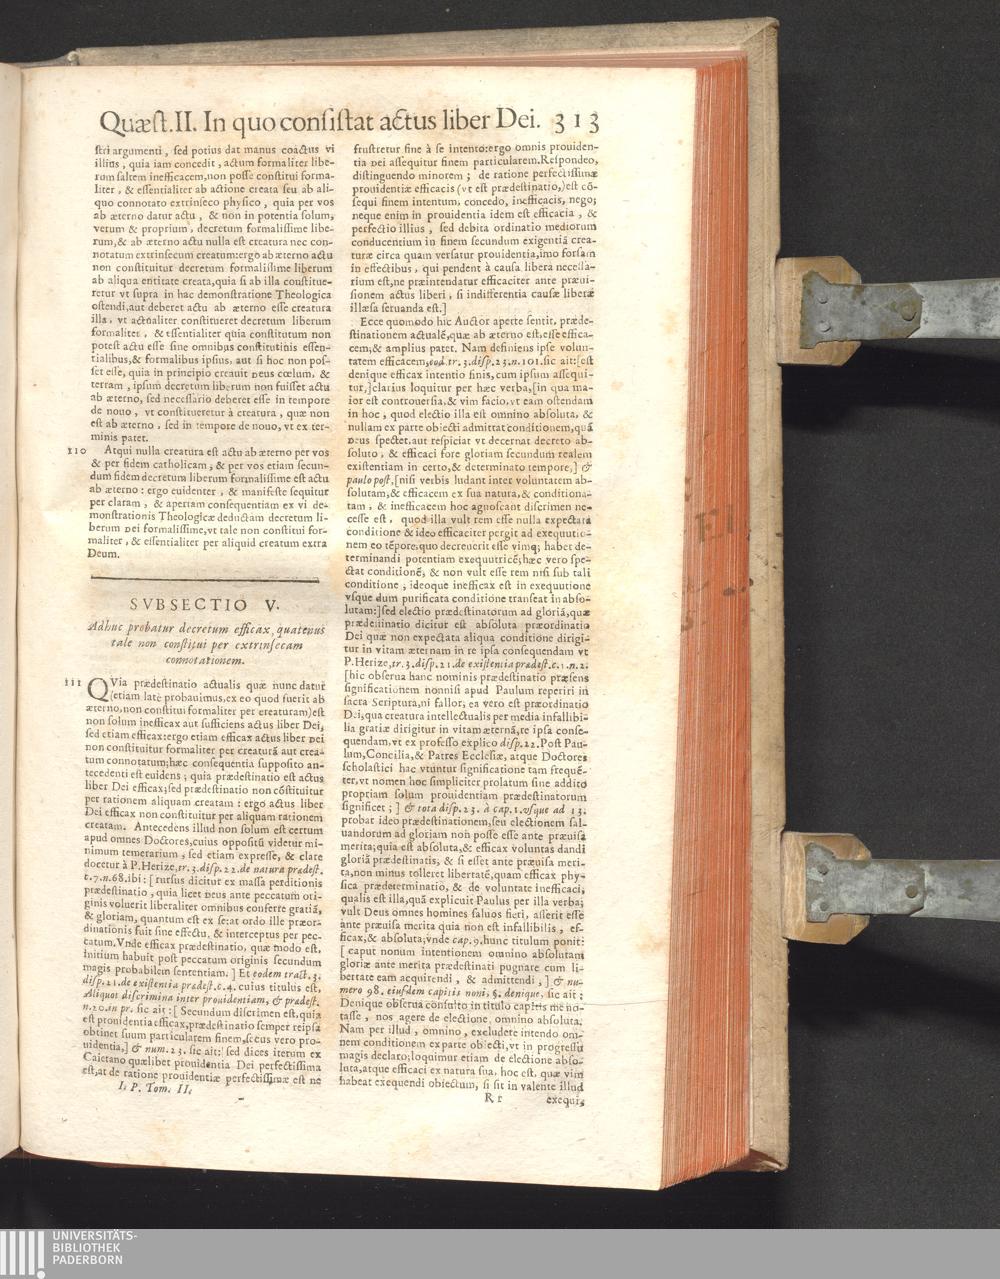 Quæst.II. In quo consistat actus liber Dei. 313
stri argumenti, sed potius dat manus coactus vi
illius, quia iam concedit, actum formaliter libe-
rum saltem inefficacem, non posse constitui forma-
liter, & essentialiter ab actione creata seu ab ali-
quo connotato extrinseco physico, quia per vos
ab æterno datur actu, & non in potentia solum,
verum & proprium, decretum formalissime libe-
rum, & ab æterno actu nulla est creatura nec con-
notatum extrinsecum creatum: ergo ab æterno actu
non constituitur decretum formalissime liberum
ab aliqua entitate creata, quia si ab illa constitue-
retur vt supra in hac demonstratione Theologica
ostendi, aut deberet actu ab æterno esse creatura
illa, vt actualiter constitueret decretum liberum
formaliter, & essentialiter quia constitutum non
potest actu esse sine omnibus constitutinis essen-
tialibus, & formalibus ipsius, aut si hoc non pos-
set esse, quia in principio creauit Deus cœlum, &
terram, ipsum decretum liberum non fuisset actu
ab æterno, sed necessario deberet esse in tempore
de nouo, vt constitueretur à creatura, quæ non
est ab æterno, sed in tempore de nouo, vt ex ter-
minis patet.
110 Atqui nulla creatura est actu ab æterno per vos
& per fidem catholicam, & per vos etiam secun-
dum fidem decretum liberum formalissime est actu
ab æterno: ergo euidenter, & manifeste sequitur
per claram, & apertam consequentiam ex vi de-
monstrationis Theologicæ deductam decretum li-
berum Dei formalissime, vt tale non constitui for-
maliter, & essentialiter per aliquid creatum extra
Deum.
SVBSECTIO V.
Adhuc probatur decretum efficax quatenus
tale non constitui per extrinsecam
connotationem.
111 QVia prædestinatio actualis quæ nunc datur
(etiam latè probauimus, ex eo quod fuerit ab
æterno, non constitui formaliter per creaturam) est
non solum inefficax aut sufficiens actus liber Dei,
sed etiam efficax: ergo etiam efficax actus liber Dei
non constituitur formaliter per creaturā aut crea-
tum connotatum; hæc consequentia supposito an-
tecedenti est euidens; quia prædestinatio est actus
liber Dei efficax; sed prædestinatio non cōstituitur
per rationem aliquam creatam: ergo actus liber
Dei efficax non constituitur per aliquam rationem
creatam. Antecedens illud non solum est certum
apud omnes Doctores, cuius oppositū videtur mi-
nimum temerarium, sed etiam expresse, & clare
docetur à P. Herize, tr. 3. disp. 22. de natura prædest.
c. 7. n. 68. ibi: [rursus dicitur ex massa perditionis
prædestinatio, quia licet Deus ante peccatum ori-
ginis voluerit liberaliter omnibus conferre gratiā,
& gloriam, quantum est ex se: at ordo ille præor-
dinationis fuit sine effectu, & interceptus per pec-
catum. Vnde efficax prædestinatio, quæ modo est,
initium habuit post peccatum originis secundum
magis probabilem sententiam.] Et eodem tract. 3.
disp. 21. de existentia prædest. c. 4. cuius titulus est,
Aliquot discrimina inter prouidentiam, & prædest.
n. 20. in pr. sic ait: [Secundum discrimen est, quia
est prouidentia efficax, prædestinatio semper reipsa
obtinet suum particularem finem, secus vero pro-
uidentia,] & num. 23. sic ait: [sed dices iterum ex
Caietano quælibet prouidentia Dei perfectissima
est, at de ratione prouidentiæ perfectissimæ est ne
I. P. Tom. II.
frustretur fine à se intento: ergo omnis prouiden-
tia Dei assequitur finem particularem. Respondeo,
distinguendo minorem; de ratione perfectissimæ
prouidentiæ efficacis (vt est prædestinatio,) est cō-
sequi finem intentum, concedo, inefficacis, nego;
neque enim in prouidentia idem est efficacia, &
perfectio illius, sed debita ordinatio mediorum
conducentium in finem secundum exigentiā crea-
turæ circa quam versatur prouidentia, imo forsam
in effectibus, qui pendent à causa libera necessa-
rium est, ne præintendatur efficaciter ante præui-
sionem actus liberi, si indifferentia causæ liberæ
illæsa seruanda est.]
Ecce quomodo hic Auctor aperte sentit, præde-
stinationem actualē, quæ ab æterno est, esse effica-
cem, & amplius patet. Nam definiens ipse volun-
tatem efficacem, eod. tr. 3. disp. 23. n. 101. sic ait: [est
denique efficax intentio finis, cum ipsum assequi-
tur,] clarius loquitur per hæc verba, [in qua ma-
ior est controuersia, & vim facio, vt eam ostendam
in hoc, quod electio illa est omnino absoluta, &
nullam ex parte obiecti admittat conditionem, quā
Deus spectet, aut respiciat vt decernat decreto ab-
soluto, & efficaci fore gloriam secundum realem
existentiam in certo, & determinato tempore,] &
paulo post, [nisi verbis ludant inter voluntatem ab-
solutam, & efficacem ex sua natura, & conditiona-
tam, & inefficacem hoc agnoscant discrimen ne-
cesse est, quod illa vult rem esse nulla expectata
conditione & ideo efficaciter pergit ad exequutio-
nem eo tēpore, quo decreuerit esse vimq; habet de-
terminandi potentiam exequutricē; hæc vero spe-
ctat conditionē, & non vult esse rem nisi sub tali
conditione, ideoque inefficax est in exequutione
vsque dum purificata conditione transeat in abso-
lutam:] sed electio prædestinatorum ad gloriā, quæ
prædestinatio dicitur est absoluta præordinatio
Dei quæ non expectata aliqua conditione dirigi-
tur in vitam æternam in re ipsa consequendam vt
P. Herize, tr. 3. disp. 21. de existentia prædest. c. 1. n. 2.
[hic obserua hanc nominis prædestinatio præsens
significationem nonnisi apud Paulum reperiri in
sacra Scriptura, ni fallor; ea vero est præordinatio
Dei, qua creatura intellectualis per media infallibi-
lia gratiæ dirigitur in vitam æternā, re ipsa conse-
quendam, vt ex professo explico disp. 22. Post Pau-
lum, Concilia, & Patres Ecclesiæ, atque Doctores
scholastici hac vtuntur significatione tam frequē-
ter, vt nomen hoc simpliciter prolatum sine addito
propriam solum prouidentiam prædestinatorum
significet;] & tota disp. 23. à cap. 1. vsque ad 13.
probat ideo prædestinationem, seu electionem sal-
uandorum ad gloriam non posse esse ante præuisa
merita; quia est absoluta, & efficax voluntas dandi
gloriā prædestinatis, & si esset ante præuisa meri-
ta, non minus tolleret libertatē, quam efficax phy-
sica prædeterminatio, & de voluntate inefficaci,
qualis est illa, quā explicuit Paulus per illa verba;
vult Deus omnes homines saluos fieri, asserit esse
ante præuisa merita quia non est infallibilis, ef-
ficax, & absoluta; vnde cap. 9. hunc titulum ponit:
[caput nonum intentionem omnino absolutam
gloriæ ante merita prædestinati pugnare cum li-
bertate eam acquirendi, & admittendi,] & nu-
mero 98. eiusdem capitis noni, §. denique, sic ait;
Denique obserua consulto in titulo capitis me no-
tasse, nos agere de electione, omnino absoluta.
Nam per illud, omnino, excludere intendo om-
nem conditionem ex parte obiecti, vt in progressu
magis declaro; loquimur etiam de electione abso-
luta, atque efficaci ex natura sua, hoc est, quæ vim
habeat exequendi obiectum, si sit in valente illud
R r exequi;
UNIVERSITÄTS-
BIBLIOTHEK
PADERBORN